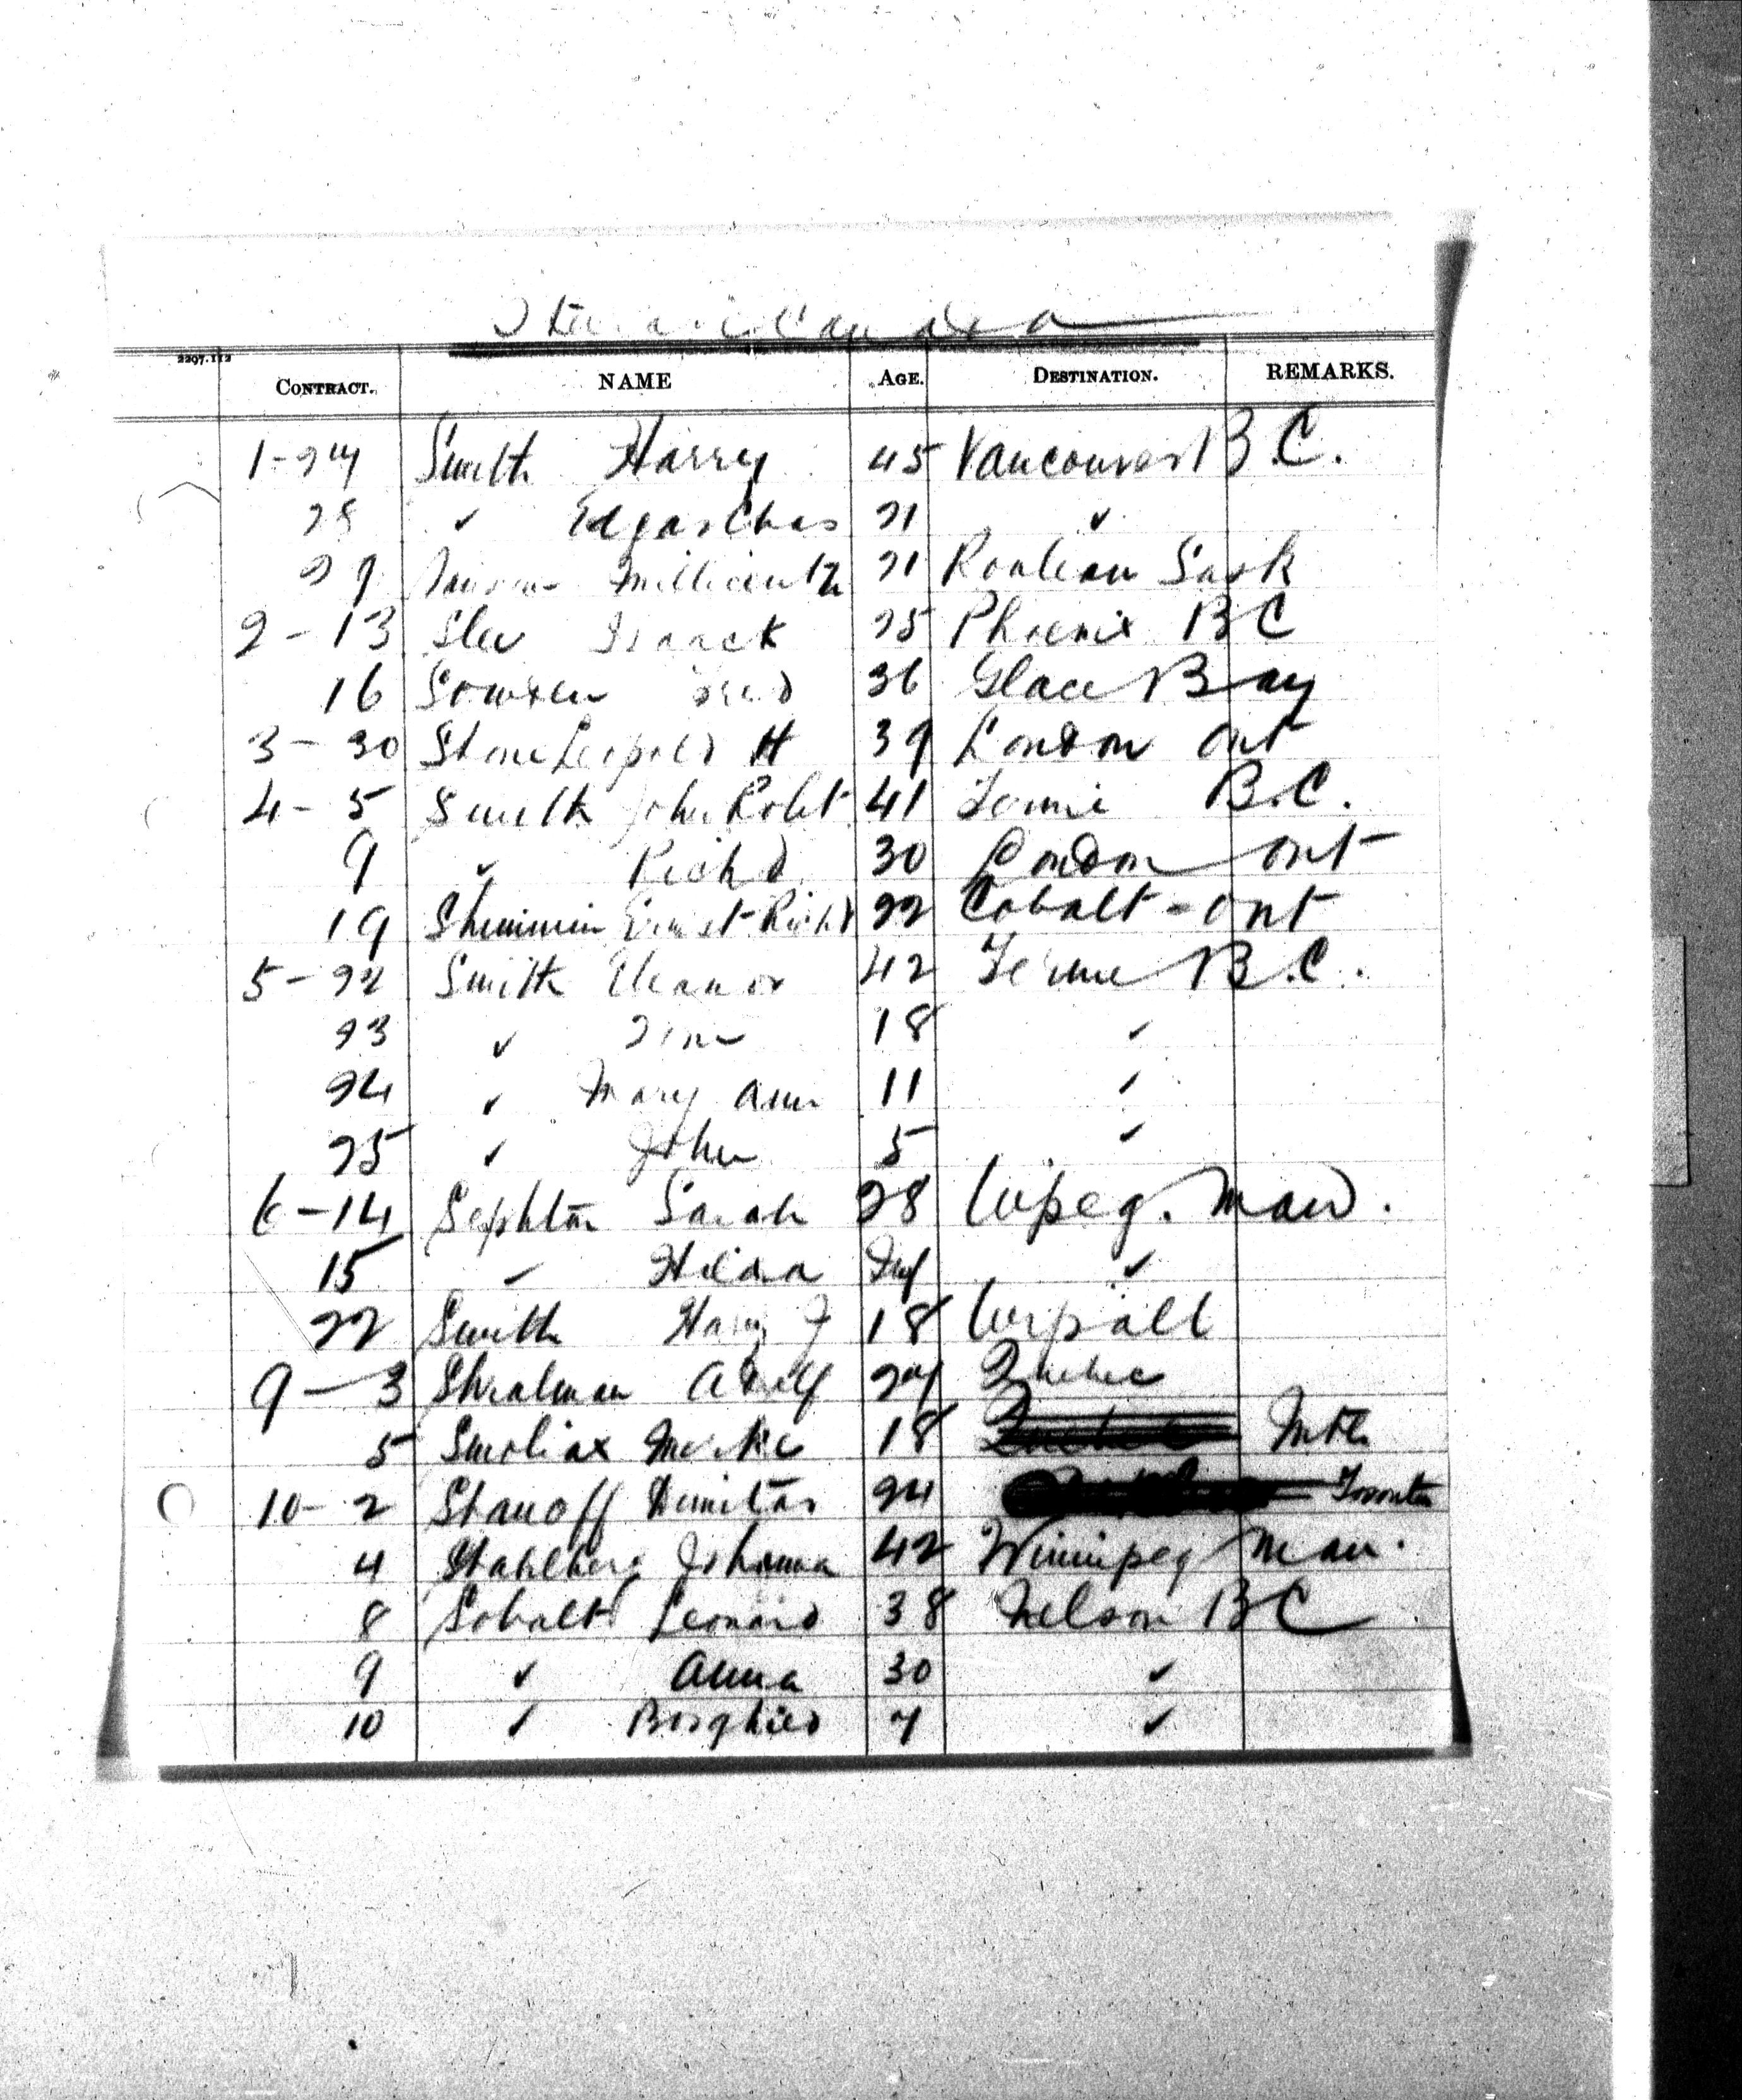 2297.112
CONTRACT. NAME AGE. DESTINATION. REMARKS.
1-27 Smith Harry 45 Vancouver B.C.
28 ✓ Edgar Chas 21 ✓
29 21 Rouleau Sask
2-13 Isaack 25 Phoenix BC
16 36 Glace Bay
3-30 Stone Leopold H 39 London Ont
4-5 Smith John Robt 41 Fernie B.C.
9 ✓ Richd 30 London Ont
19 Shimmin Ernest Richd 22 Cobalt-Ont
5-22 Smith Eleanor 42 Fernie B.C.
23 ✓ 18 ✓
24 ✓ Mary Ann 11 ✓
25 ✓ John 5 ✓
6-14 Sephton Sarah 28 Wpeg. Man.
15 ✓ Hilda Inf ✓
22 Smith Harry F 18
9-3 Adolf 27 Quebec
5 18 Mtl
10-2 Stanoff Dimitar 24 Toronto
4 Stahlberg Johanna 42 Winnipeg Man.
8 Leonard 38 Nelson BC
9 ✓ Anna 30 ✓
10 ✓ Borghild 7 ✓